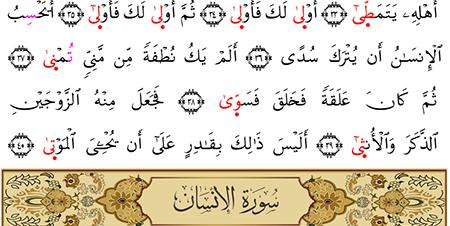 أَهْلِهِۦ يَتَمَطَّىٰٓ ﴿٣٣﴾ أَوْلَىٰ لَكَ فَأَوْلَىٰ ﴿٣٤﴾ ثُمَّ أَوْلَىٰ لَكَ فَأَوْلَىٰٓ ﴿٣٥﴾ أَيَحْسِبُ
ٱلْإِنسَـٰنُ أَن يُتْرَكَ سُدًى ﴿٣٦﴾ أَلَمْ يَكُ نُطْفَةً مِّن مَّنِىٍّ تُمْنَىٰ ﴿٣٧﴾
ثُمَّ كَانَ عَلَقَةً فَخَلَقَ فَسَوَّىٰ ﴿٣٨﴾ فَجَعَلَ مِنْهُ ٱلزَّوْجَيْنِ
ٱلذَّكَرَ وَٱلْأُنثَىٰٓ ﴿٣٩﴾ أَلَيْسَ ذَٰلِكَ بِقَـٰدِرٍ عَلَىٰٓ أَن يُحْـِۧىَ ٱلْمَوْتَىٰ ﴿٤٠﴾
سُورَةُ الإِنسَان